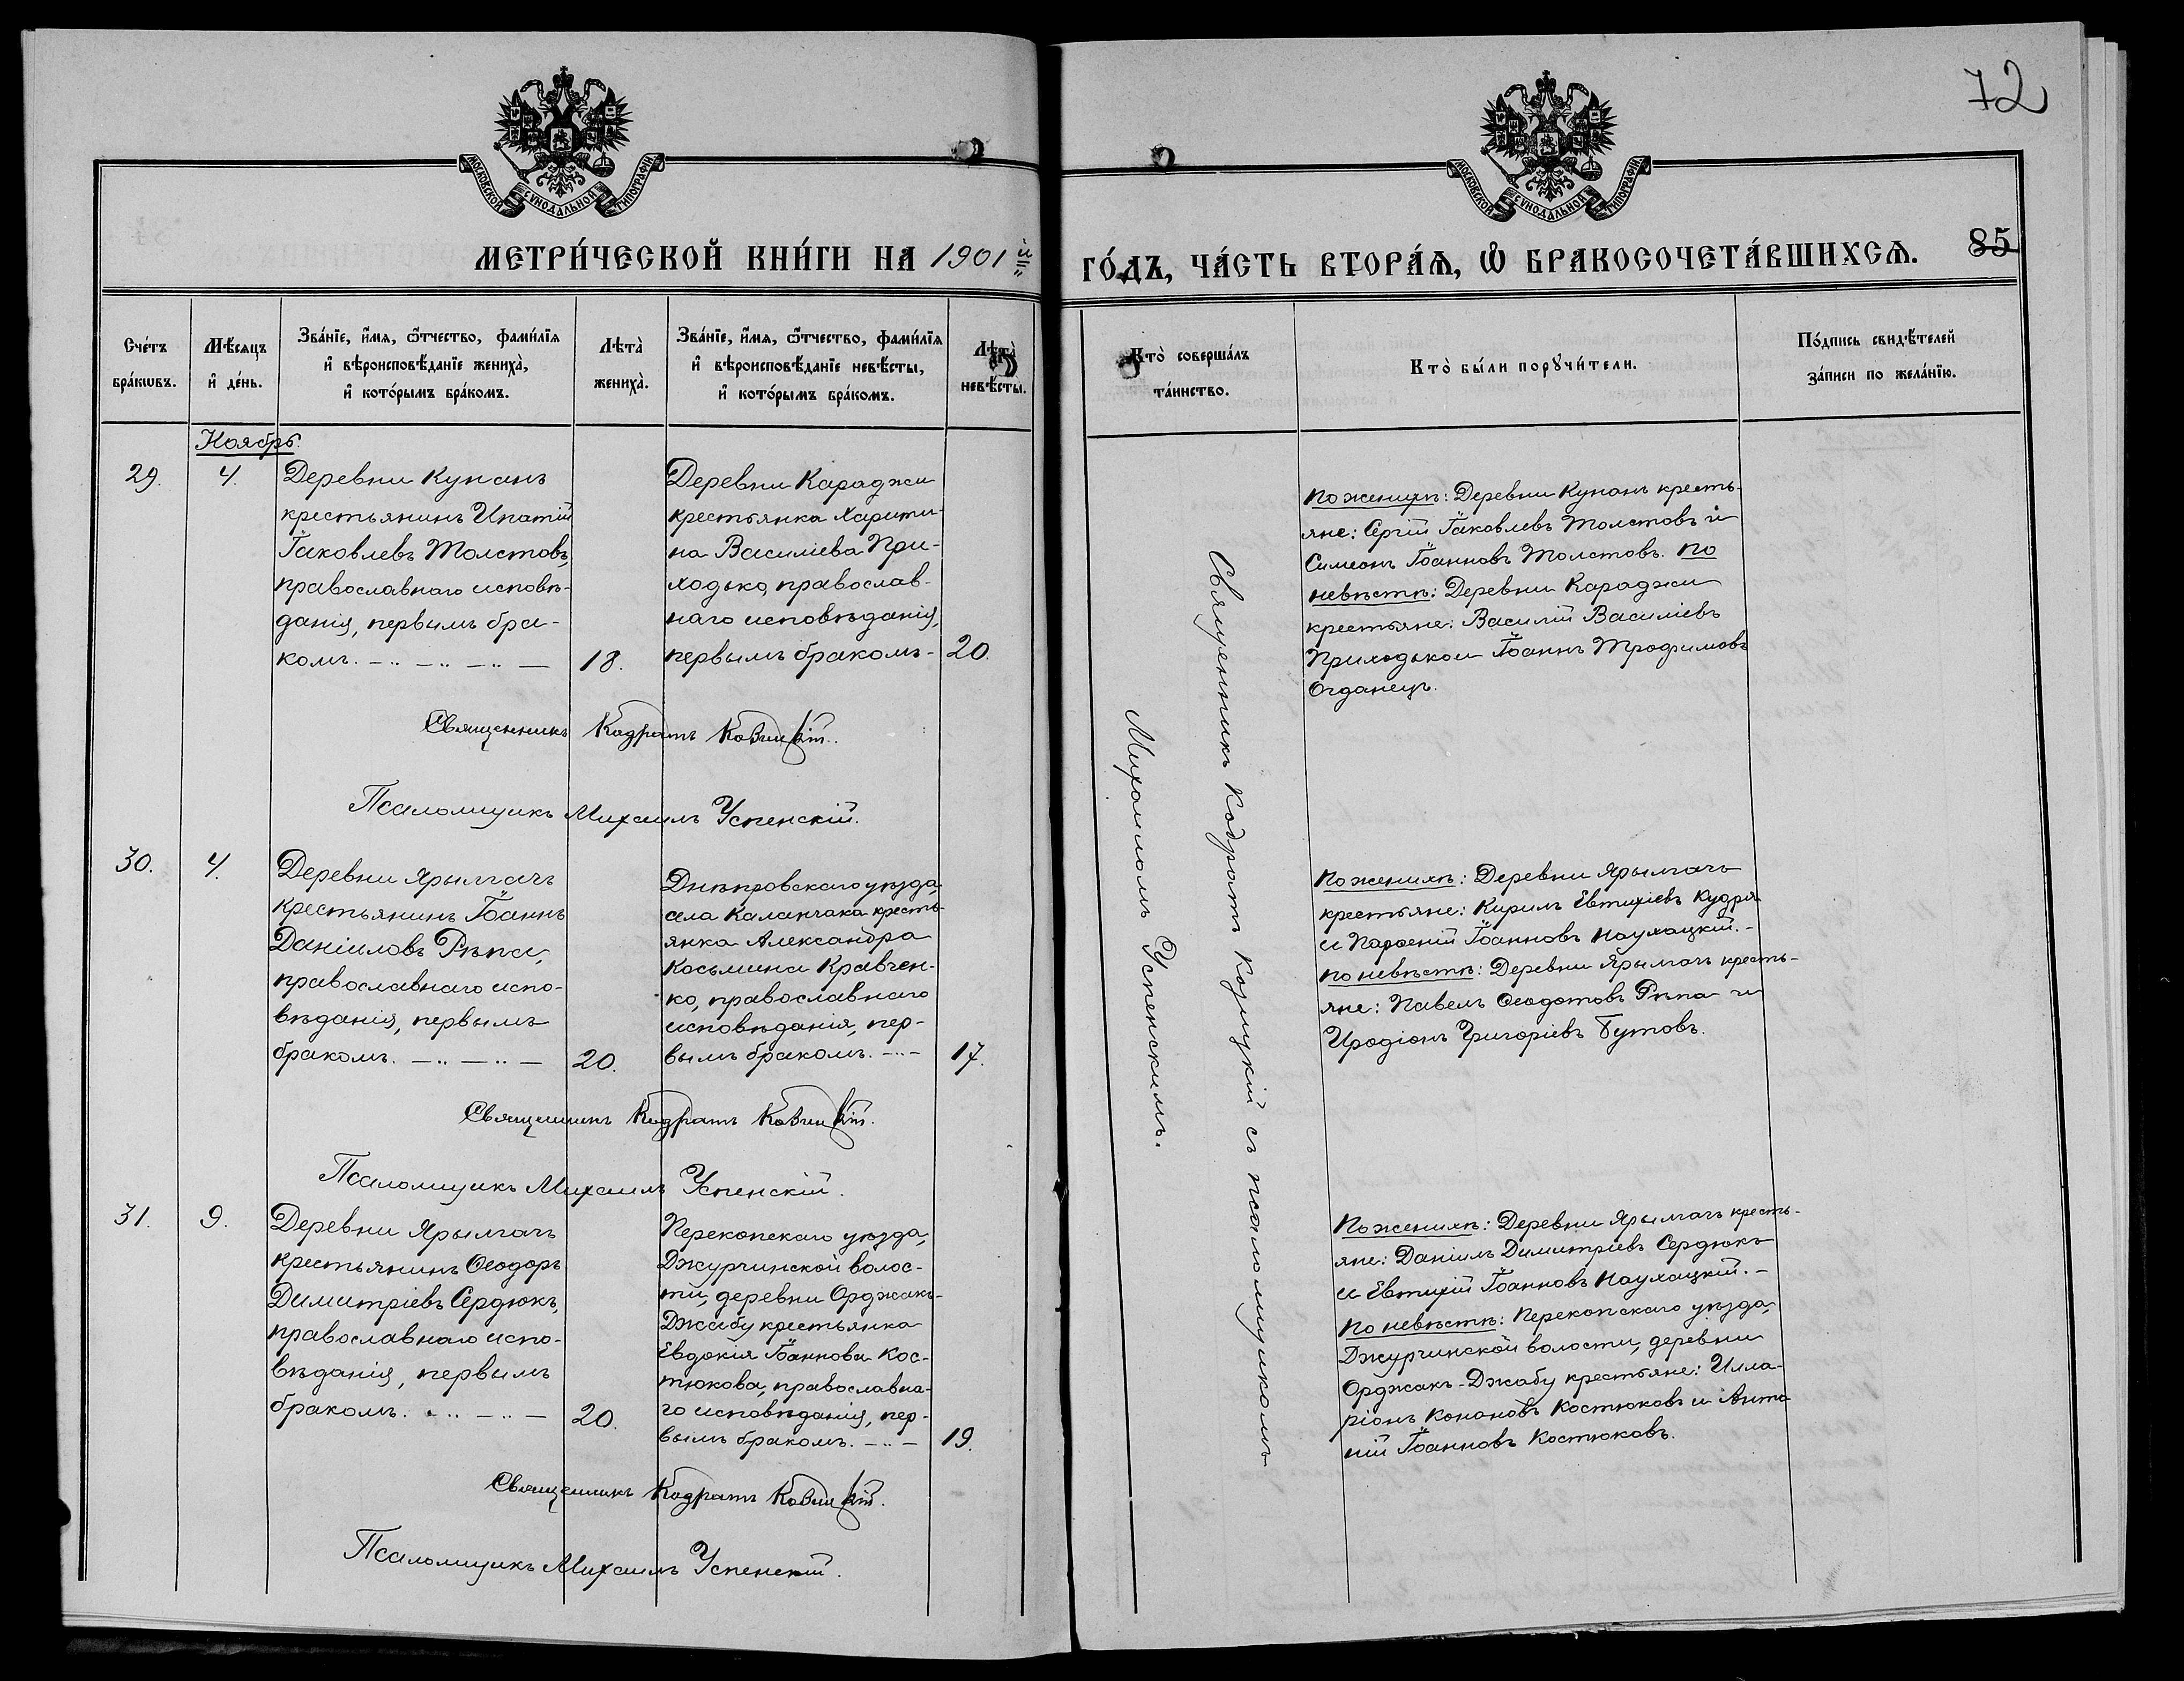 72
МОСКОВСКОЙ СѴНОДАЛЬНОЙ ТИПОГРАФІИ
МОСКОВСКОЙ СѴНОДАЛЬНОЙ ТИПОГРАФІИ
МЕТРИ́ЧЕСКОЙ КНИ́ГИ НА 1901 й
ГО́ДЪ, ЧА́СТЬ ВТОРА́Ѧ, Ѽ БРАКОСОЧЕТА́ВШИХСѦ.
85
Сче́тъ
бра́кѡвъ.
Мѣ́сяцъ
и҆ де́нь.
Зва́нїе, и҆́мя, ѻ҆́тчество, фами́лїя
и҆ вѣроисповѣ́данїе жениха̀,
и҆ кото́рымъ бра́комъ.
Лѣта̀
жениха̀.
Зва́нїе, и҆́мя, ѻ҆́тчество, фами́лїя
и҆ вѣроисповѣ́данїе невѣ́сты,
и҆ кото́рымъ бра́комъ.
Лѣта̀
невѣ́сты.
Кто̀ соверша́лъ
та́инство.
Кто̀ бы́ли порꙋчи́тели.
По́дпись свидѣ́телей
за́писи по жела́нїю.
Ноябрь.
29.
4.
Деревни Кунанъ
крестьянинъ Ипатій
Іаковлевъ Толстовъ,
православнаго исповѣ-
данія, первымъ бра-
комъ. — .. — .. — .. —
18.
Деревни Караджи
крестьянка Харити-
на Василіева При-
ходько, православ-
наго исповѣданія,
первымъ бракомъ -
20.
По женихѣ: Деревни Кунанъ кресть-
яне: Сергій Іаковлевъ Толстовъ и
Симеонъ Іоанновъ Толстовъ. По
невѣстѣ: Деревни Караджи
крестьяне: Василій Василіевъ
Приходько и Іоаннъ Трофимовъ
Огданецъ.
Священникъ Кодратъ
Псаломщикъ Михаилъ Успенскій.
30.
4.
Деревни Ярылгачъ
крестьянинъ Іоаннъ
Даніиловъ Рѣпа,
православнаго испо-
вѣданія, первымъ
бракомъ. — .. — .. —
20.
Днѣпровскаго уѣзда,
села Каланчака кресть-
янка Александра
Косьмина Кравчен-
ко, православнаго
исповѣданія, пер-
вымъ бракомъ. - .. -
17.
По женихѣ: Деревни Ярылгачъ
крестьяне: Кирилъ Евтихіевъ Кудря
и Парѳеній Іоанновъ Наухацкій. -
По невѣстѣ: Деревни Ярылгачъ кресть-
яне: Павелъ Ѳеодотовъ Рѣпа и
Иродіонъ Григоріевъ Бутовъ.
Священникъ Кодратъ
Псаломщикъ Михаилъ Успенскій.
31.
9.
Деревни Ярылгачъ
крестьянинъ Ѳеодоръ
Димитріевъ Сердюкъ,
православнаго испо-
вѣданія, первымъ
бракомъ. - .. — .. —
20.
Перекопскаго уѣзда,
Джурчинской волос-
ти, деревни Орджакъ-
Джабу крестьянка
Евдокія Іоаннова Кос-
тюкова, православна-
го исповѣданія, пер-
вымъ бракомъ. — .. —
19.
По женихѣ: Деревни Ярылгачъ кресть-
яне: Даніилъ Димитріевъ Сердюкъ
и Евтихій Іоанновъ Наухацкій. -
По невѣстѣ: Перекопскаго уѣзда,
Джурчинской волости, деревни
Орджакъ-Джабу крестьяне: Илла-
ріонъ Кононовъ Костюковъ и Анто-
ній Іоанновъ Костюковъ.
Священникъ Кодратъ
Псаломщикъ Михаилъ Успенскій.
Священникъ Кодратъ Козицкій съ псаломщикомъ
Михаиломъ Успенскимъ.